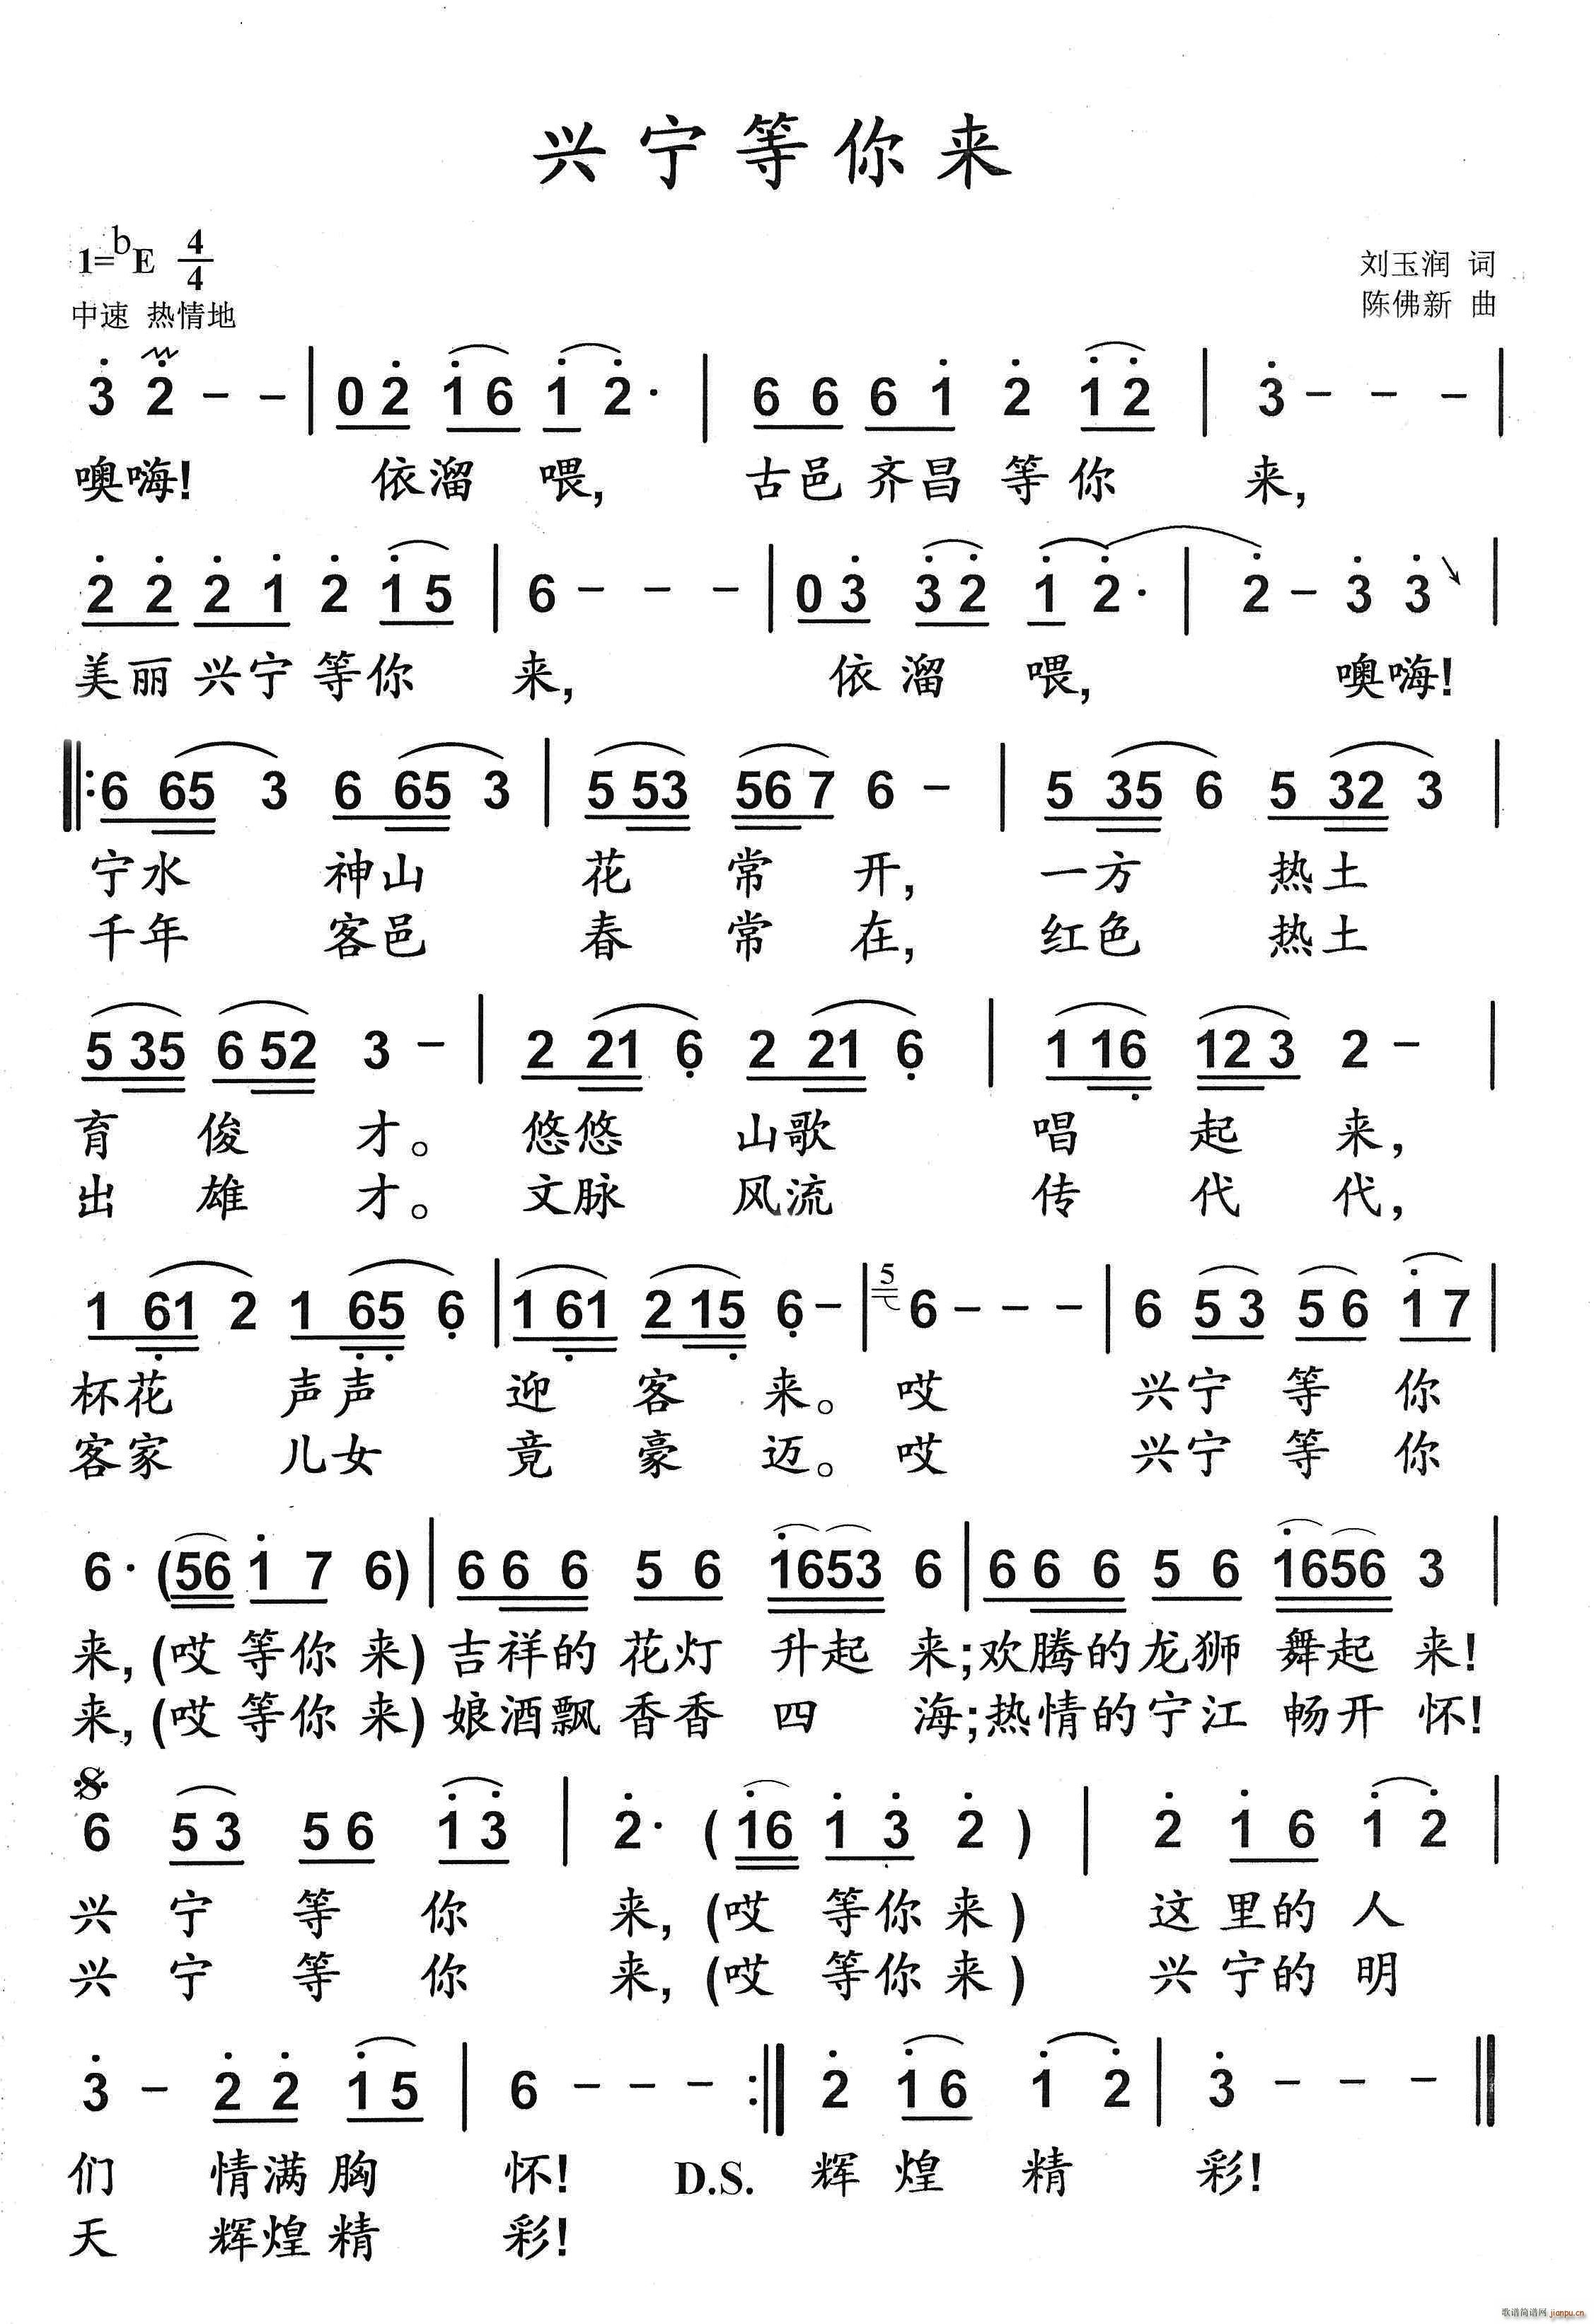 兴宁等你来
1=bE 4/4
刘玉润 词
中速 热情地
陈佛新 曲
3 2 - - | 0 2 1 6 1 2· | 6 6 6 1 2 1 2 | 3 - - - |
噢嗨! 依溜 喂, 古邑齐昌等你 来,
2 2 2 1 2 1 5 | 6 - - - | 0 3 3 2 1 2· | 2 - 3 3 ↘ |
美丽兴宁等你 来, 依溜 喂, 噢嗨!
‖: 6 65 3 6 65 3 | 5 53 56 7 6 - | 5 35 6 5 32 3 |
宁水 神山 花 常 开, 一方 热土
千年 客邑 春 常 在, 红色 热土
5 35 6 52 3 - | 2 21 6 2 21 6 | 1 16 12 3 2 - |
育 俊 才。 悠悠 山歌 唱 起 来,
出 雄 才。 文脉 风流 传 代 代,
1 61 2 1 65 6 | 1 61 2 15 6 - | 5 6 - - - | 6 5 3 5 6 1 7 |
杯花 声声 迎 客 来。 哎 兴宁 等 你
客家 儿女 竟 豪 迈。 哎 兴宁 等 你
6· (56 1 7 6) | 6 6 6 5 6 1653 6 | 6 6 6 5 6 1656 3 |
来,(哎 等你 来) 吉祥的 花灯 升起 来;欢腾的龙狮 舞起 来!
来,(哎 等你 来) 娘酒飘 香香 四 海;热情的宁江 畅开 怀!
𝄋
6 5 3 5 6 1 3 | 2· ( 16 1 3 2 ) | 2 1 6 1 2 |
兴 宁 等 你 来,(哎 等你来) 这里的 人
兴 宁 等 你 来,(哎 等你来) 兴宁的 明
3 - 2 2 1 5 | 6 - - - :‖ 2 1 6 1 2 | 3 - - - ‖
们 情满胸 怀! D.S. 辉 煌 精 彩!
天 辉煌精 彩!
歌谱简谱网 jianpu.cn